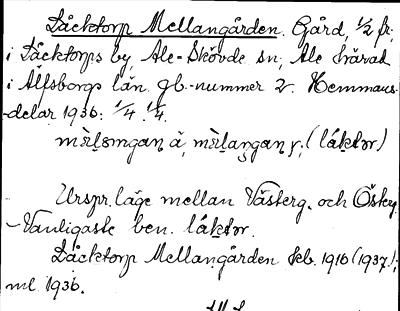 Låcktorp Mellangården. Gård, 1/2 fr.
i Låcktorps by, Ale-Skövde sn, Ale härad
i Älfsborgs län. Jb.-nummer 2. Hemmans-
-delar 1936: 1/4. 1/4.
(láktər)
Urspr. läge mellan Västerg. och Österg.
- Vanligaste ben. láktər.
Låcktorp Mellangården Jkb. 1916 (1937);
ml. 1936.